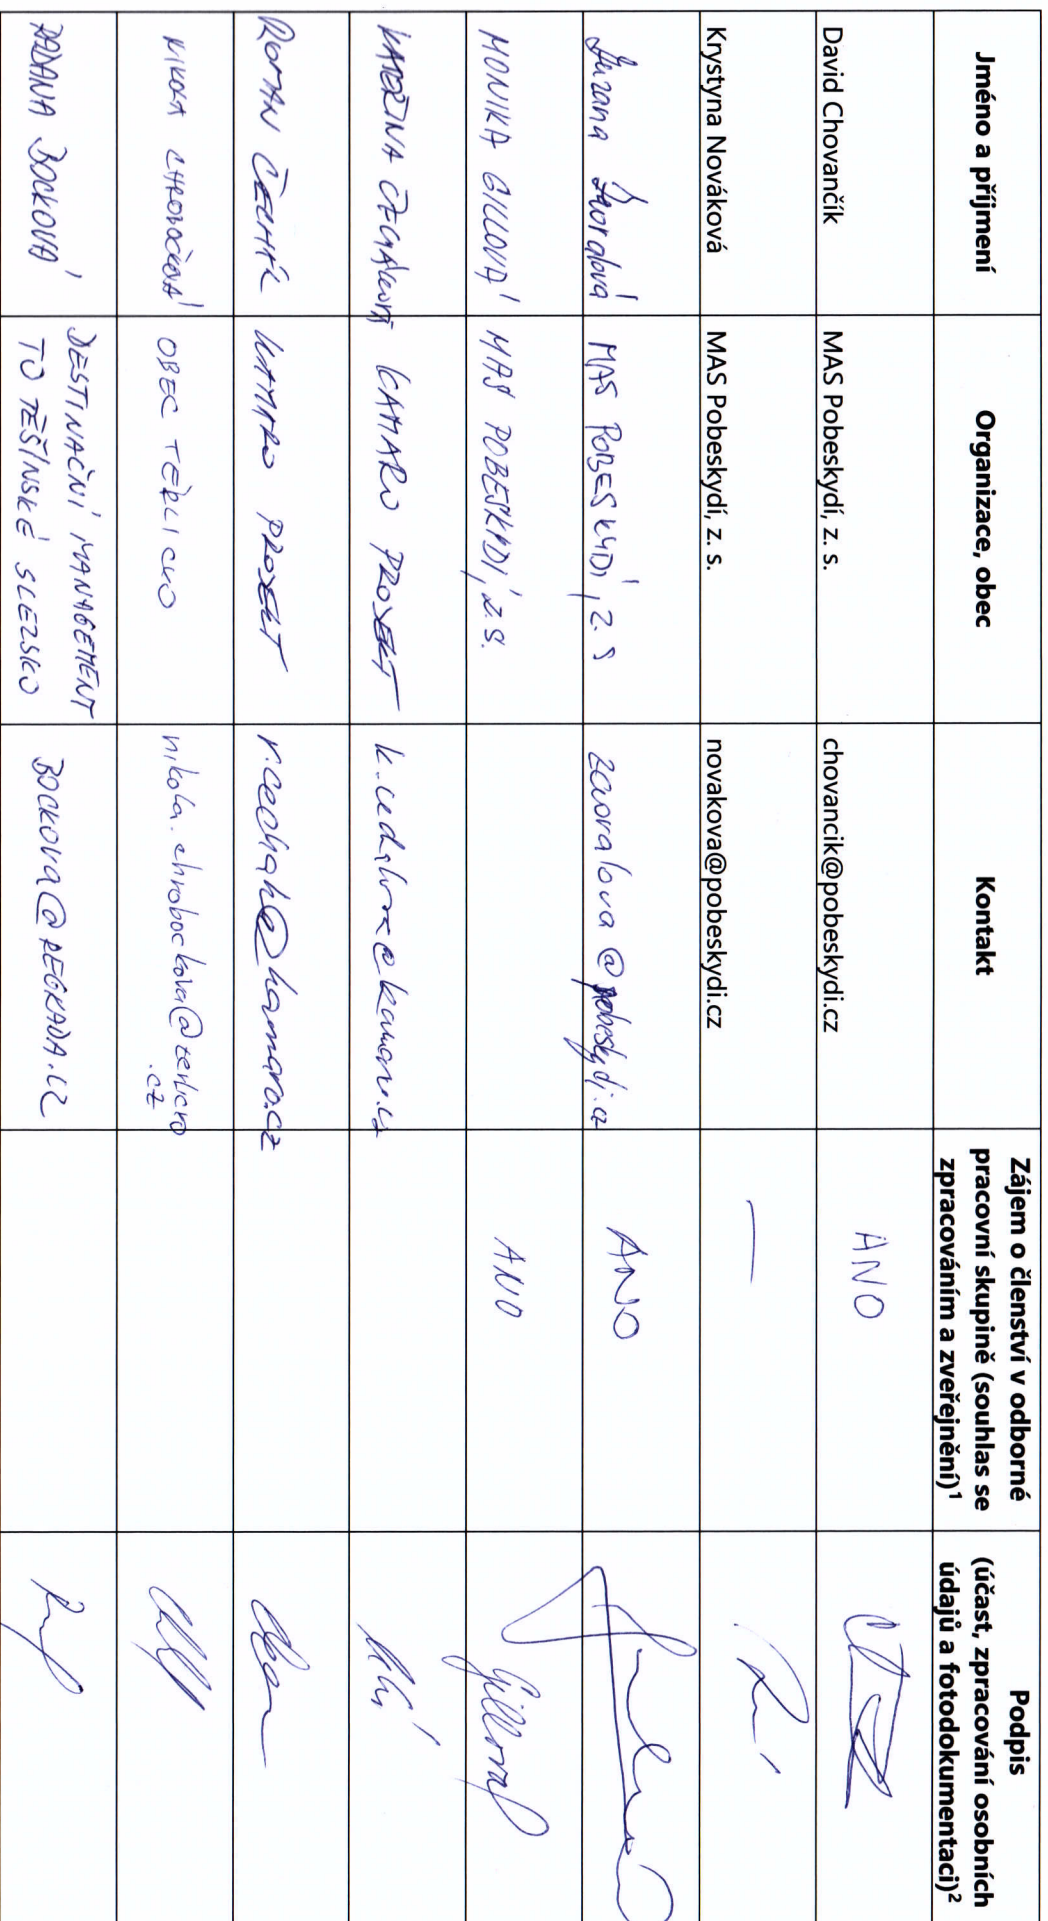 Jméno a příjmení
Organizace, obec
Kontakt
Zájem o členství v odborné
pracovní skupině (souhlas se
zpracováním a zveřejnění)¹
Podpis
(účast, zpracování osobních
údajů a fotodokumentaci)²
David Chovančík
MAS Pobeskydí, z. s.
chovancik@pobeskydi.cz
ANO
Krystyna Nováková
MAS Pobeskydí, z. s.
novakova@pobeskydi.cz
—
Zuzana Zvoralová
MAS POBESKYDÍ, z. s
zavoralova@pobeskydi.cz
ANO
MONIKA GILLOVÁ
MAS POBESKYDÍ, z.s.
ANO
Gillová
KATEŘINA
KAMARO PROJEKT
ROMAN ČECHÁK
KAMARO PROJEKT
r.cechak@kamaro.cz
NIKOLA CHROBOČKOVÁ
OBEC TĚRLICKO
nikola.chrobockova@terlicko
.cz
RADANA BOCKOVÁ
DESTINAČNÍ MANAGEMENT
TO TĚŠÍNSKÉ SLEZSKO
BOCKOVA@REGRADA.CZ